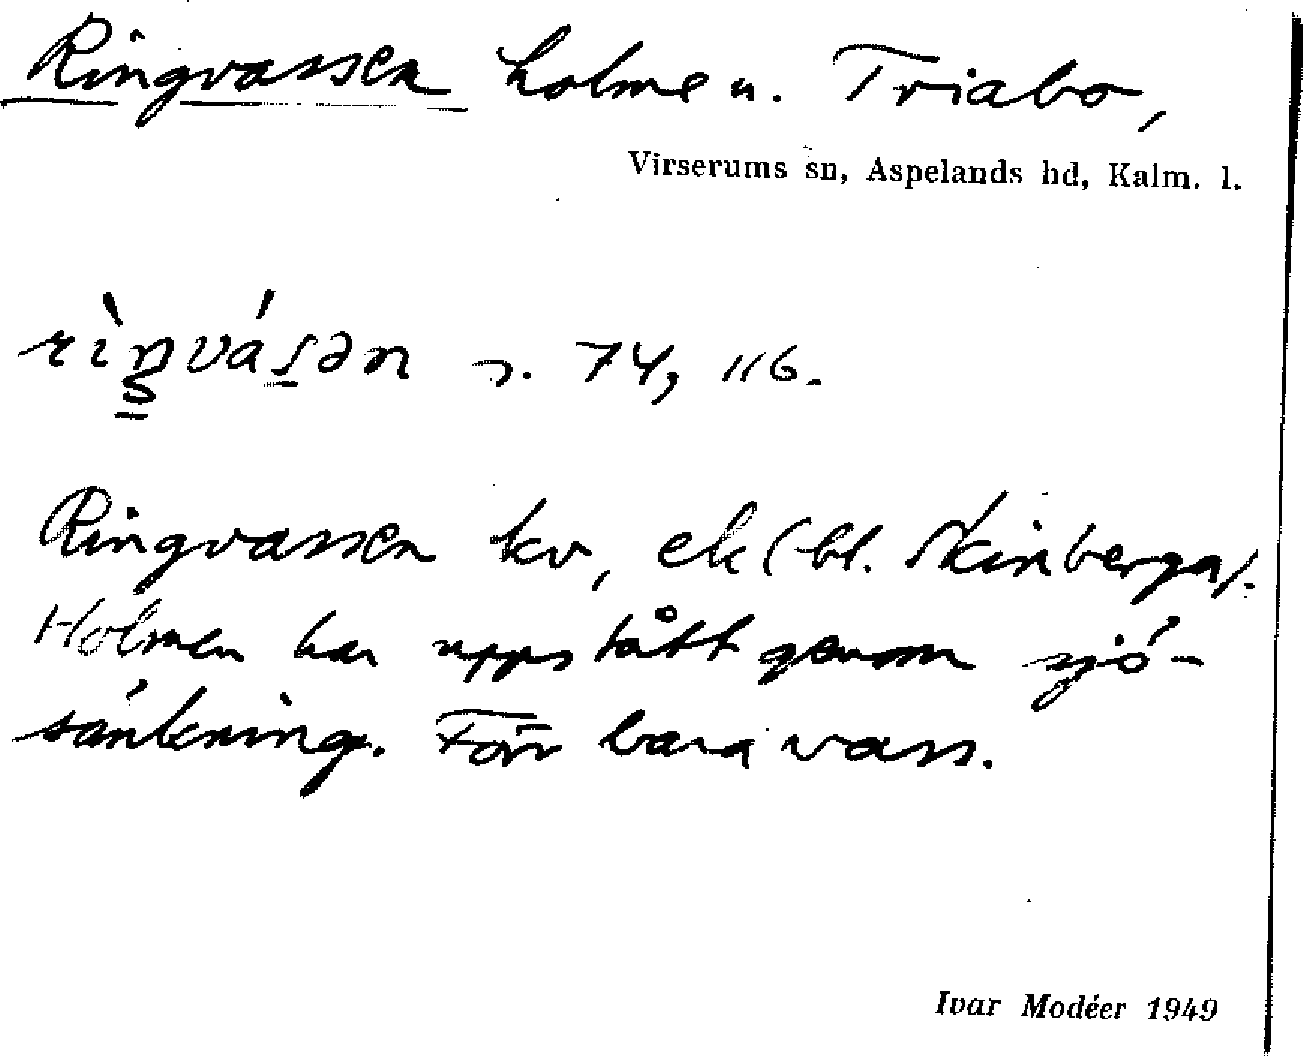 Ringvassen holme u. Triabo,
Virserums sn, Aspelands hd, Kalm. l.
rìŋvásən 74, 116.
Ringvassen kv, ek (bl. Skinberga).
Holmen har uppstått genom sjö-
sänkning. Förr bara vass.
Ivar Modéer 1949